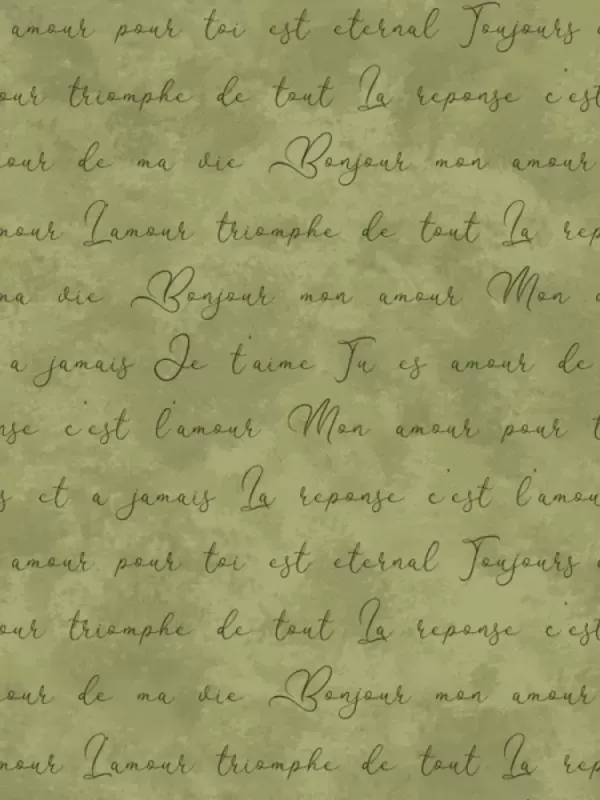 amour pour toi est eternal Toujours
our triomphe de tout La reponse c'est
our de ma vie Bonjour mon amour
mour L'amour triomphe de tout La rep
ma vie Bonjour mon amour Mon
a jamais Je t'aime Tu es amour de
nse c'est l'amour Mon amour pour t
s et a jamais La reponse c'est l'amou
amour pour toi est eternal Toujours
our triomphe de tout La reponse c'est
our de ma vie Bonjour mon amour
mour L'amour triomphe de tout La rep